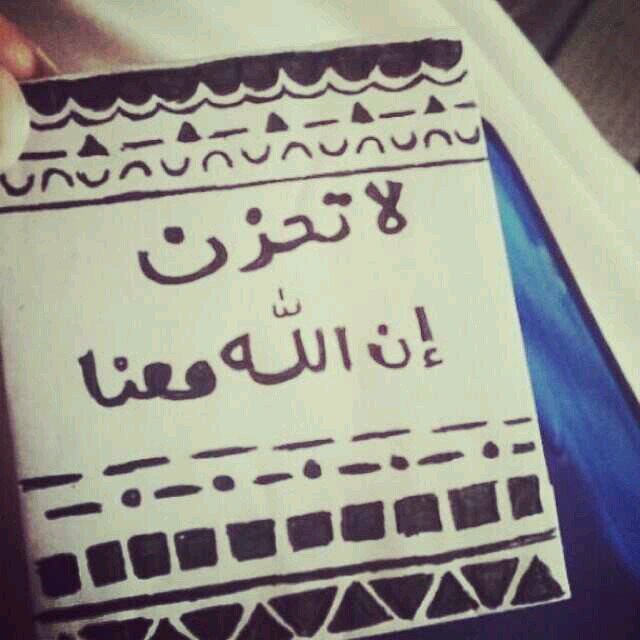 لا تحزن
إن اللّه معنا